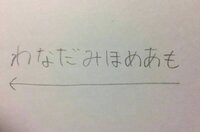 わなだみほめあも